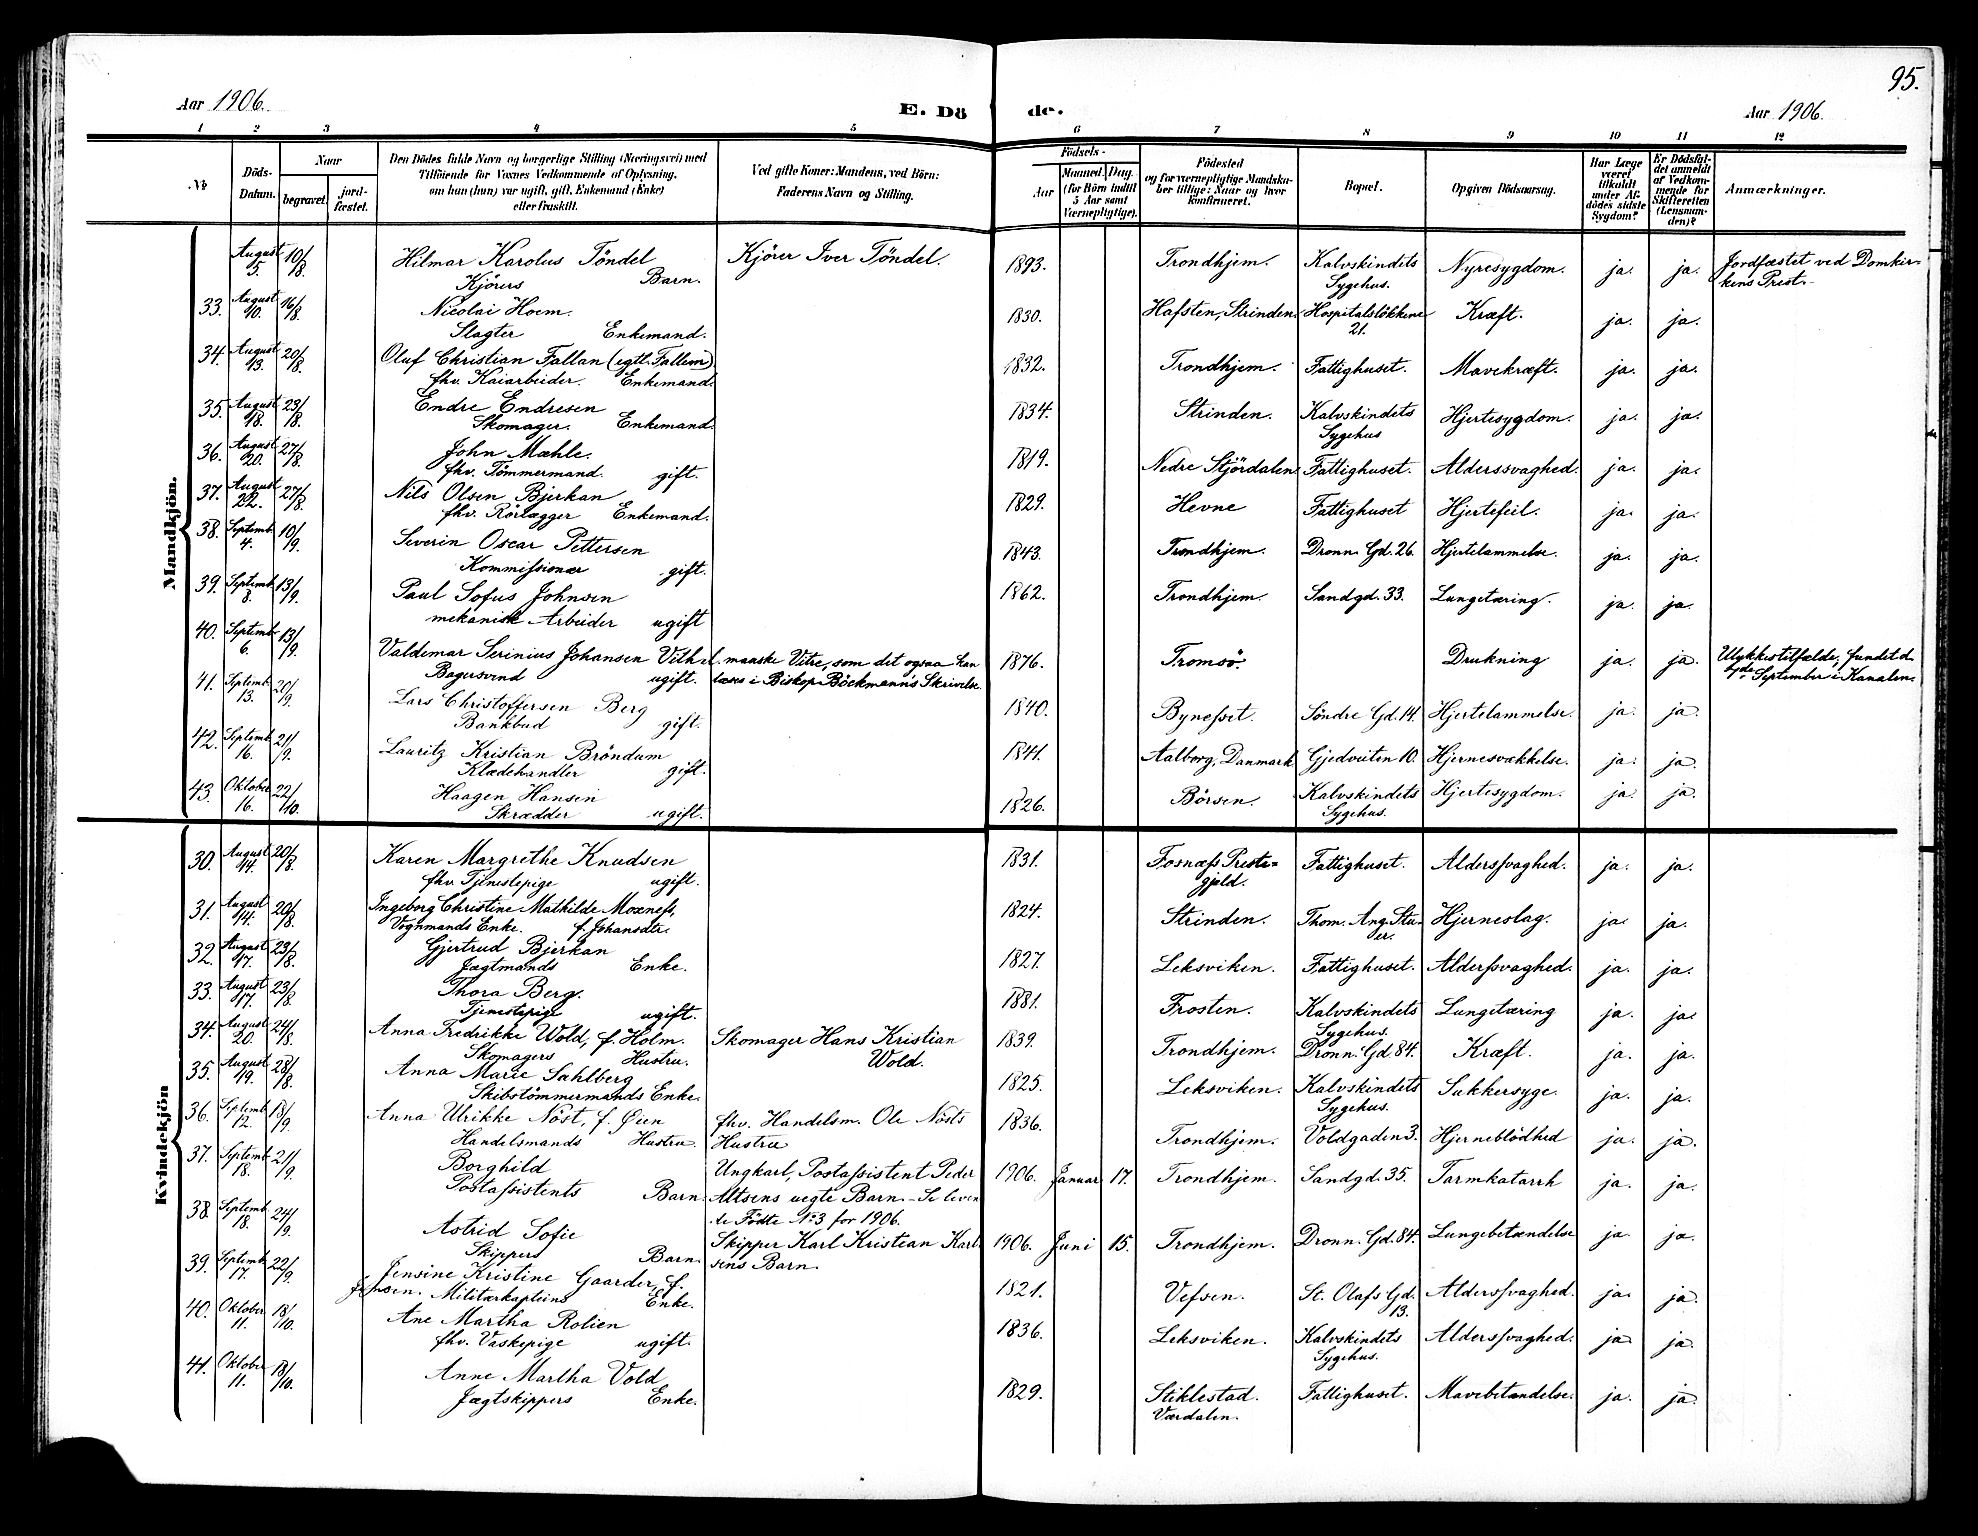 95.
Aar 1906. E. Dö de. Aar 1906.
1 2 3 4 5 6 7 8 9 10 11 12
No Döds-Datum. Naar begravet. jordfæstet. Den Dödes fulde Navn og borgerlige Stilling (Næringsvei) med Tilföiende for Voxnes Vedkommende af Oplysning, om han (hun) var ugift, gift, Enkemand (Enke) eller fraskilt. Ved gifte Koner: Mandens, ved Börn: Faderens Navn og Stilling. Födsels- Aar Maaned. Dag. (for Börn indtil 5 Aar samt Værnepligtige). Födested og for værnepligtige Mandskaber tillige: Naar og hvor konfirmeret. Bopæl. Opgiven Dödsaarsag. Har Læge været tilkaldt under Afdödes sidste Sygdom? Er Dödsfaldet anmeldt af Vedkommende for Skifteretten (Lensmanden)? Anmærkninger.
Mandkjön.
August 5. 10/8. Hilmar Karolus Töndel Kjörer Iver Töndel. 1893. Trondhjem. Kalvskindets Sygehus. Nyresygdom. ja. ja. Jordfæstet ved Domkirkens Prest.
Kjörers Barn.
33. August 10. 16/8. Nicolai Hoem. 1830. Hafsten, Strinden. Hospitalslökkene 21. Kræft. ja. ja.
Slagter Enkemand.
34. August 13. 20/8. Oluf Christian Fallan (egtl. Fallein) 1832. Trondhjem. Fattighuset. Mavekræft. ja. ja.
fhv. Kaiarbeider. Enkemand.
35. August 18. 23/8. Endre Endresen 1834. Strinden. Kalvskindets Sygehus Hjertesygdom. ja. ja.
Skomager. Enkemand.
36. August 20. 27/8. John Mæhle. 1819. Nedre Stjördalen. Fattighuset. Alderssvaghed. ja. ja.
fhv. Tömmermand. gift.
37. August 22. 27/8. Nils Olsen Bjerkan 1829. Hevne Fattighuset Hjertefeil. ja. ja.
fhv. Rörlægger Enkemand.
38. Septemb. 4. 10/9. Severin Oscar Pettersen 1843. Trondhjem. Dronn. Gd. 26. Hjertelammelse. ja. ja.
Kommissionær gift.
39. Septemb. 8. 13/9. Paul Sofus Johnsen 1862. Trondhjem. Sandgd. 33. Lungetæring. ja. ja.
mekanisk Arbeider ugift
40. Septemb. 6. 13/9. Valdemar Serinius Johansen Vith el. manske Vitre, som det ogsaa kan 1876. Tromsö. Drukning ja. ja. Ulykkestilfælde, fundet d.
Bagersvend ugift. læses i Biskop Böckmann's Skrivelse. September i Kanalen.
41. Septemb. 13. 20/9. Lars Christoffersen Berg 1840. Bynesset. Söndre Gd. 14. Hjertelammelse. ja. ja.
Bankbud gift.
42. Septemb. 16. 21/9. Lauritz Kristian Bröndum 1841. Aalborg, Danmark Gjedveiten 10. Hjernesvækkelse. ja. ja.
Klædehandler gift.
43. Oktober 16. 22/10. Haagen Hansen 1826. Börsen. Kalvskindets Sygehus. Hjertesygdom. ja. ja.
Skrædder ugift.
Kvindekjön
30. August 14. 20/8. Karen Margrethe Knudsen 1831. Fosnæs Prestegjeld. Fattighuset. Alderssvaghed. ja. ja.
fhv. Tjenestepige ugift.
31. August 14. 20/8. Ingeborg Christine Mathilde Moxness, 1824. Strinden. Thom. Ang. Stuer. Hjerneslag. ja. ja.
Vognmands Enke. f. Johansdtr.
32. August 17. 23/8. Gjertrud Bjerkan 1827. Leksviken. Fattighuset. Alderssvaghed. ja. ja.
Jægtmands Enke.
33. August 17. 23/8. Thora Berg. 1881. Frosten. Kalvskindets Sygehus. Lungetæring ja. ja.
Tjenestepige ugift.
34. August 20. 24/8. Anna Fredrikke Wold, f. Holm. Skomager Hans Kristian Wold. 1839. Trondhjem. Dronn. Gd. 84. Kræft. ja. ja.
Skomagers Hustru.
35. August 19. 28/8. Anna Marie Sahlberg 1825. Leksviken. Kalvskindets Sygehus. Sukkersyge. ja. ja.
Skibstömmermands Enke.
36. Septemb. 12. 18/9. Anna Ulrikke Nöst, f. Øien fhv. Handelsm. Ole Nösts 1836. Trondhjem. Voldgaden 3. Hjerneblödhed ja. ja.
Handelsmands Hustru. Hustru
37. Septemb. 18. 21/9. Borghild Ungkarl, Postassistent Peder 1906. Januar 17. Trondhjem. Sandgd. 35. Tarmkatarrh ja. ja.
Postassistents Barn. Altsens uegte Barn. Se leven
de Födte No 3 for 1906.
38. Septemb. 18. 24/9. Astrid Sofie Skipper Karl Kristian Karl 1906. Juni 15. Trondhjem. Dronn. Gd. 84. Lungebetændelse ja. ja.
Skippers Barn. sens Barn.
39. Septemb. 17. 22/9. Jensine Kristine Gaarder, f. 1821. Vefsen. St. Olafs Gd. 13. Alderssvaghed. ja. ja.
Jensen. Militærkapteins Enke.
40. Oktober 11. 18/10. Ane Martha Rolien 1836. Leksviken. Kalvskindets Sygehus. Alderssvaghed. ja. ja.
fhv. Vaskepige ugift.
41. Oktober 11. 18/10. Anne Martha Vold 1829. Stiklestad. Værdalen. Fattighuset. Mavebetændelse. ja. ja.
Jægtskippers Enke.